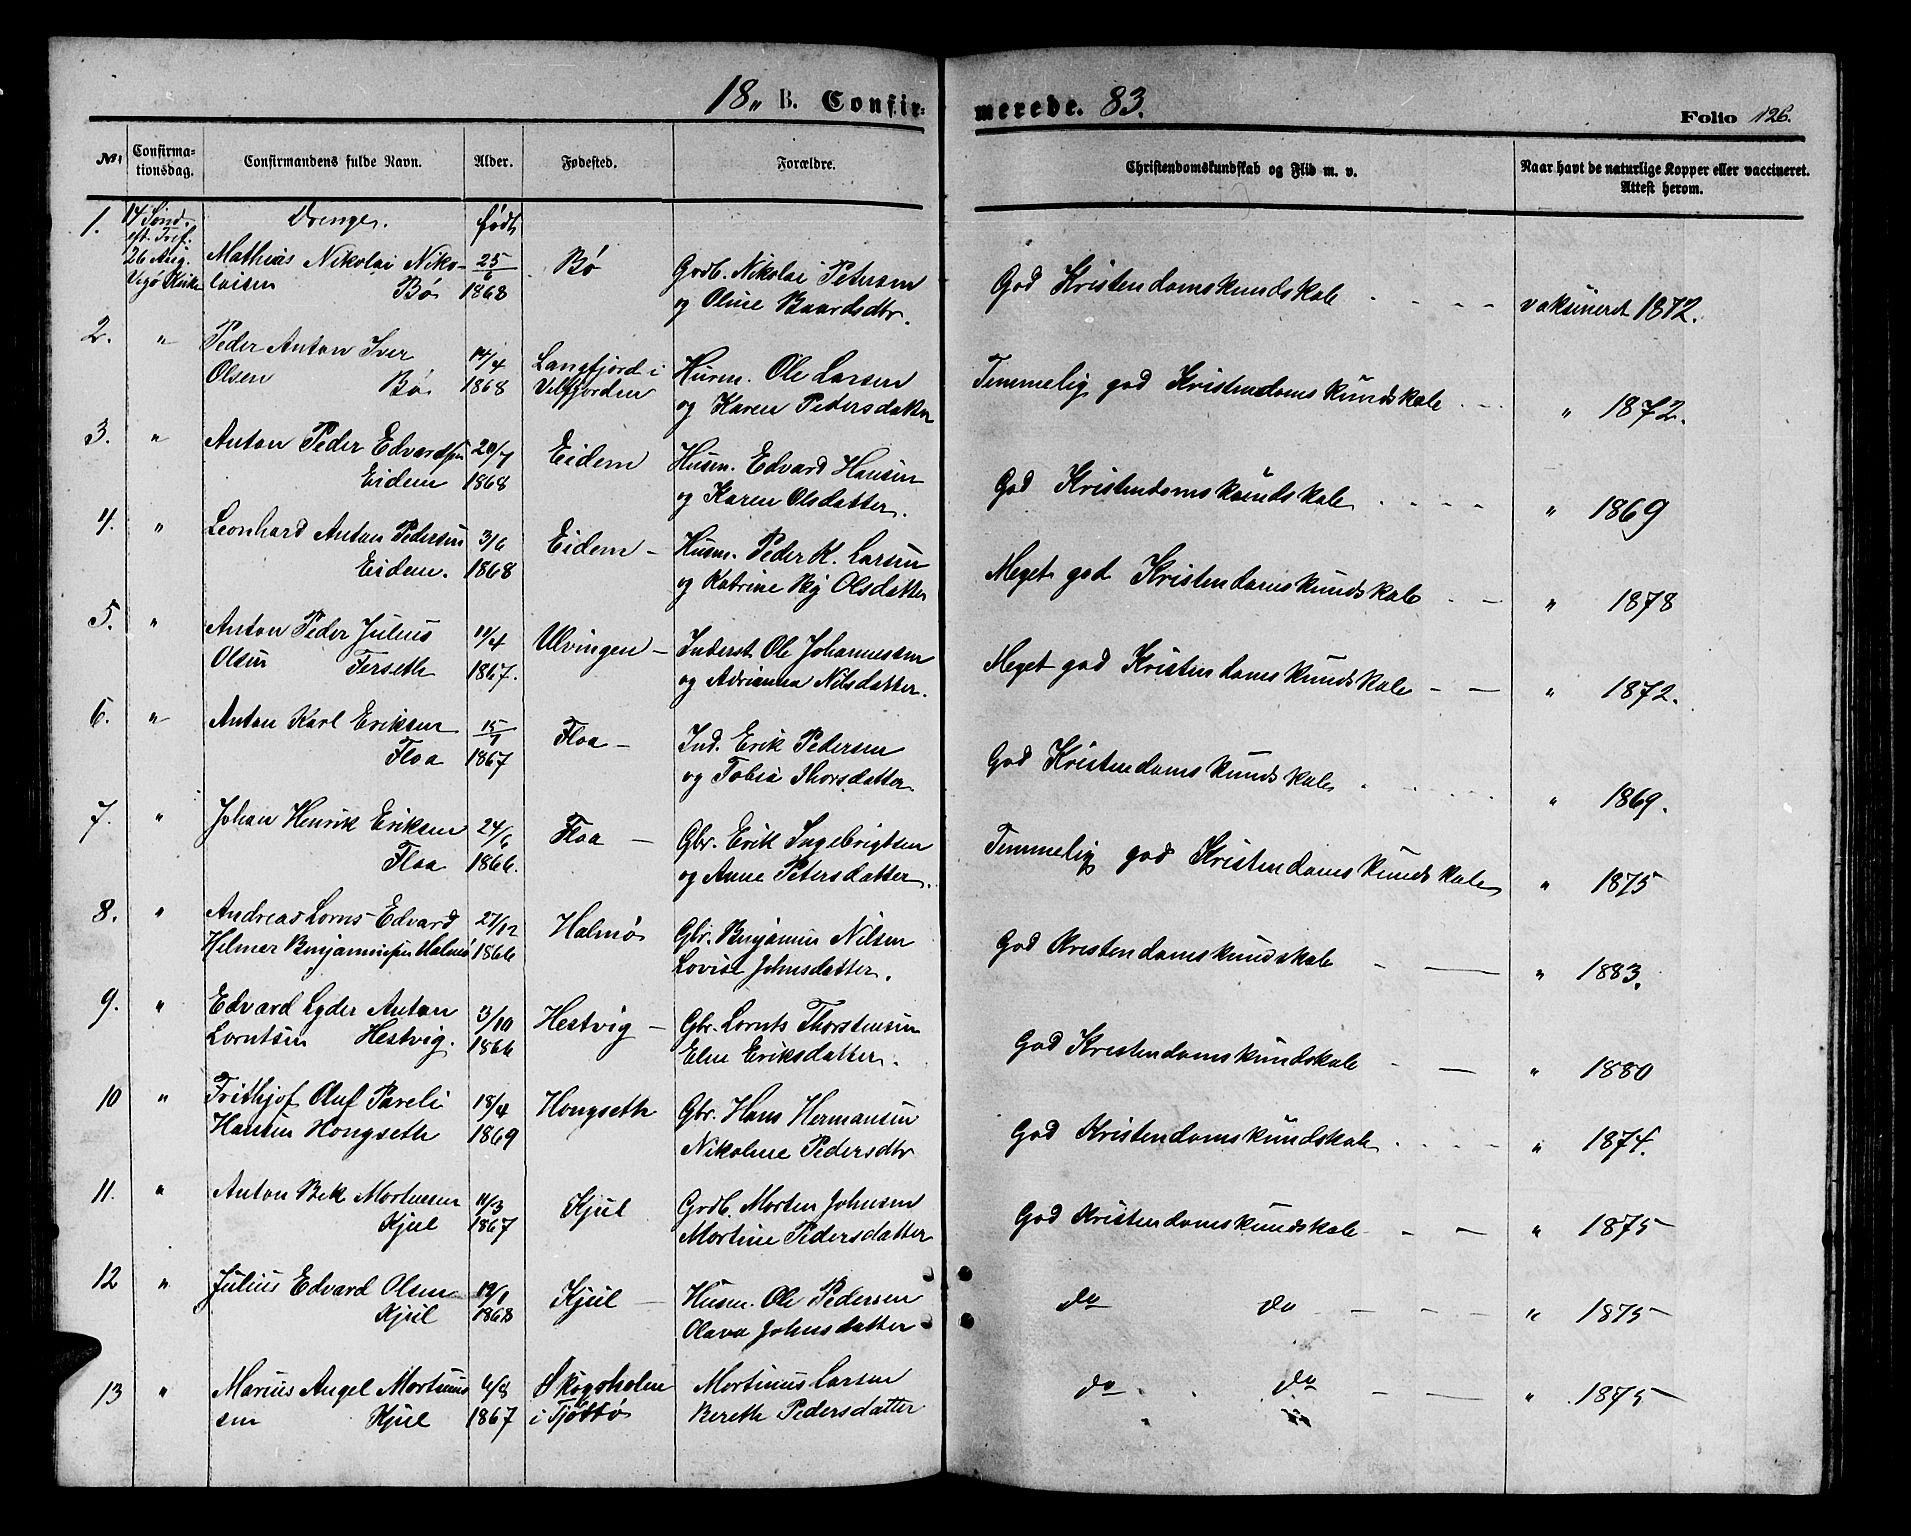 18„ B. Confir- merede. 83.
Folio 126.
No. Confirmationsdag. Confirmandens fulde Navn. Alder. Fødested. Forældre. Christendomskundskab og Flid m. v. Naar havt de naturlige Kopper eller vaccineret. Attest herom.
1. 14 Sønd. Drenge. født
eft. Tref.
26 Aug. Mathias Nikolai Niko- 25/6 Bø Grdb. Nikolai Petersen God Kristendomskundskab - - - vaksineret 1872.
Vegø Kirke laisen Bø 1868 og Oline Baardsdtr.
2. „ Peder Anton Iver 14/4 Langfjord i Husm. Ole Larsen Temmelig god Kristendomskundskab - - „ 1872.
Olsen Bø 1868 Velfjorden og Karen Pedersdatter
3. „ Anton Peder Edvardsen 20/7 Eidem Husm. Edvard Hansen God Kristendomskundskab - - - - „ 1869
Eidem 1868 og Karen Olsdatter.
4. „ Leonhard Anton Pedersen 3/6 Eidem – Husm. Peder K. Larsen Meget god Kristendomskundskab - — „ 1878
Eidem. 1868 og Katrine Olsdatter
5. „ Anton Peder Julius 11/4 Ulvingen – Inderst. Ole Johannessen Meget god Kristendomskundskab - — „ 1872.
Olsen Førseth 1867. og Adrianna Nilsdatter.
6. „ Anton Karl Eriksen 15/1 Floa – Ind. Erik Pedersen God Kristendomskundskab - - - - „ 1869.
Floa 1867 og Tobia Thorsdatter
7. „ Johan Henrik Eriksen 24/6 Floa — Gbr. Erik Ingebrigtsen Temmelig god Kristendomskundskab „ 1875
Floa 1866. og Anne Petersdatter.
8. „ Andreas Lorns Edvard 27/12 Halmø Gbr. Benjamin Nilsen God Kristendomskundskab - — „ 1883.
Helmer Benjaminsen Halmø 1866 Lovise Johnsdatter.
9. „ Edvard Lyder Anton 3/10 Hestvig – Gbr. Lornts Thorstensen God Kristendomskundskab - — „ 1880
Lorntsen Hestvig. 1866 Elen Eriksdatter.
10 „ Frithjof Oluf Pareli 18/4 Hongseth Gbr. Hans Hermansen God Kristendomskundskab - - - - „ 1874.
Hansen Hongseth 1869 Nikoline Pedersdtr
11. „ Anton Bek Mortensen 11/3 Kjul Grdb. Morten Johnsen God Kristendomskundskab - - — „ 1875
Kjul 1867 Mortine Pedersdatter
12 „ Julius Edvard Olsen 19/1 Kjul — Husm. Ole Pedersen do do - - - - „ 1875
Kjul 1868 Olava Johnsdatter
13 „ Marius Angel Mortinus 6/8 Skogsholm Mortinus Larsen do do - — „ 1875
sen Kjul 1867 i Tjøttø Bereth Pedersdatter